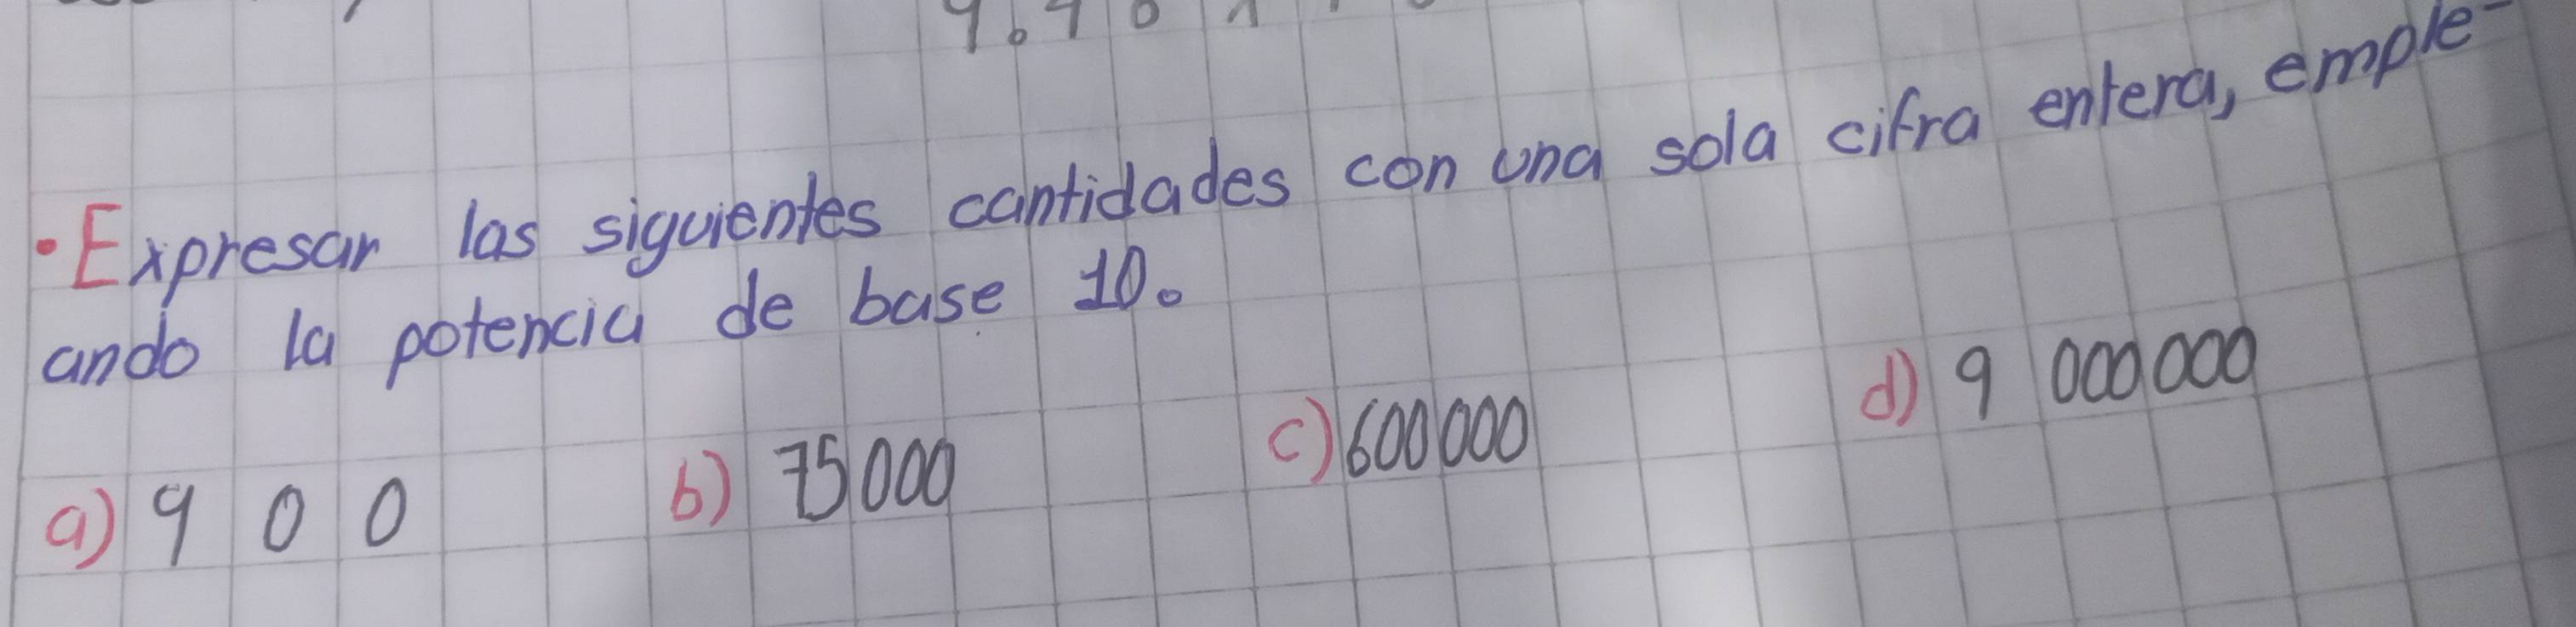 • Expresar las siguientes cantidades con una sola cifra entera, emple-
ando la potencia de base 10.
a) 900 b) 75000 c) 600000 d) 9 000000